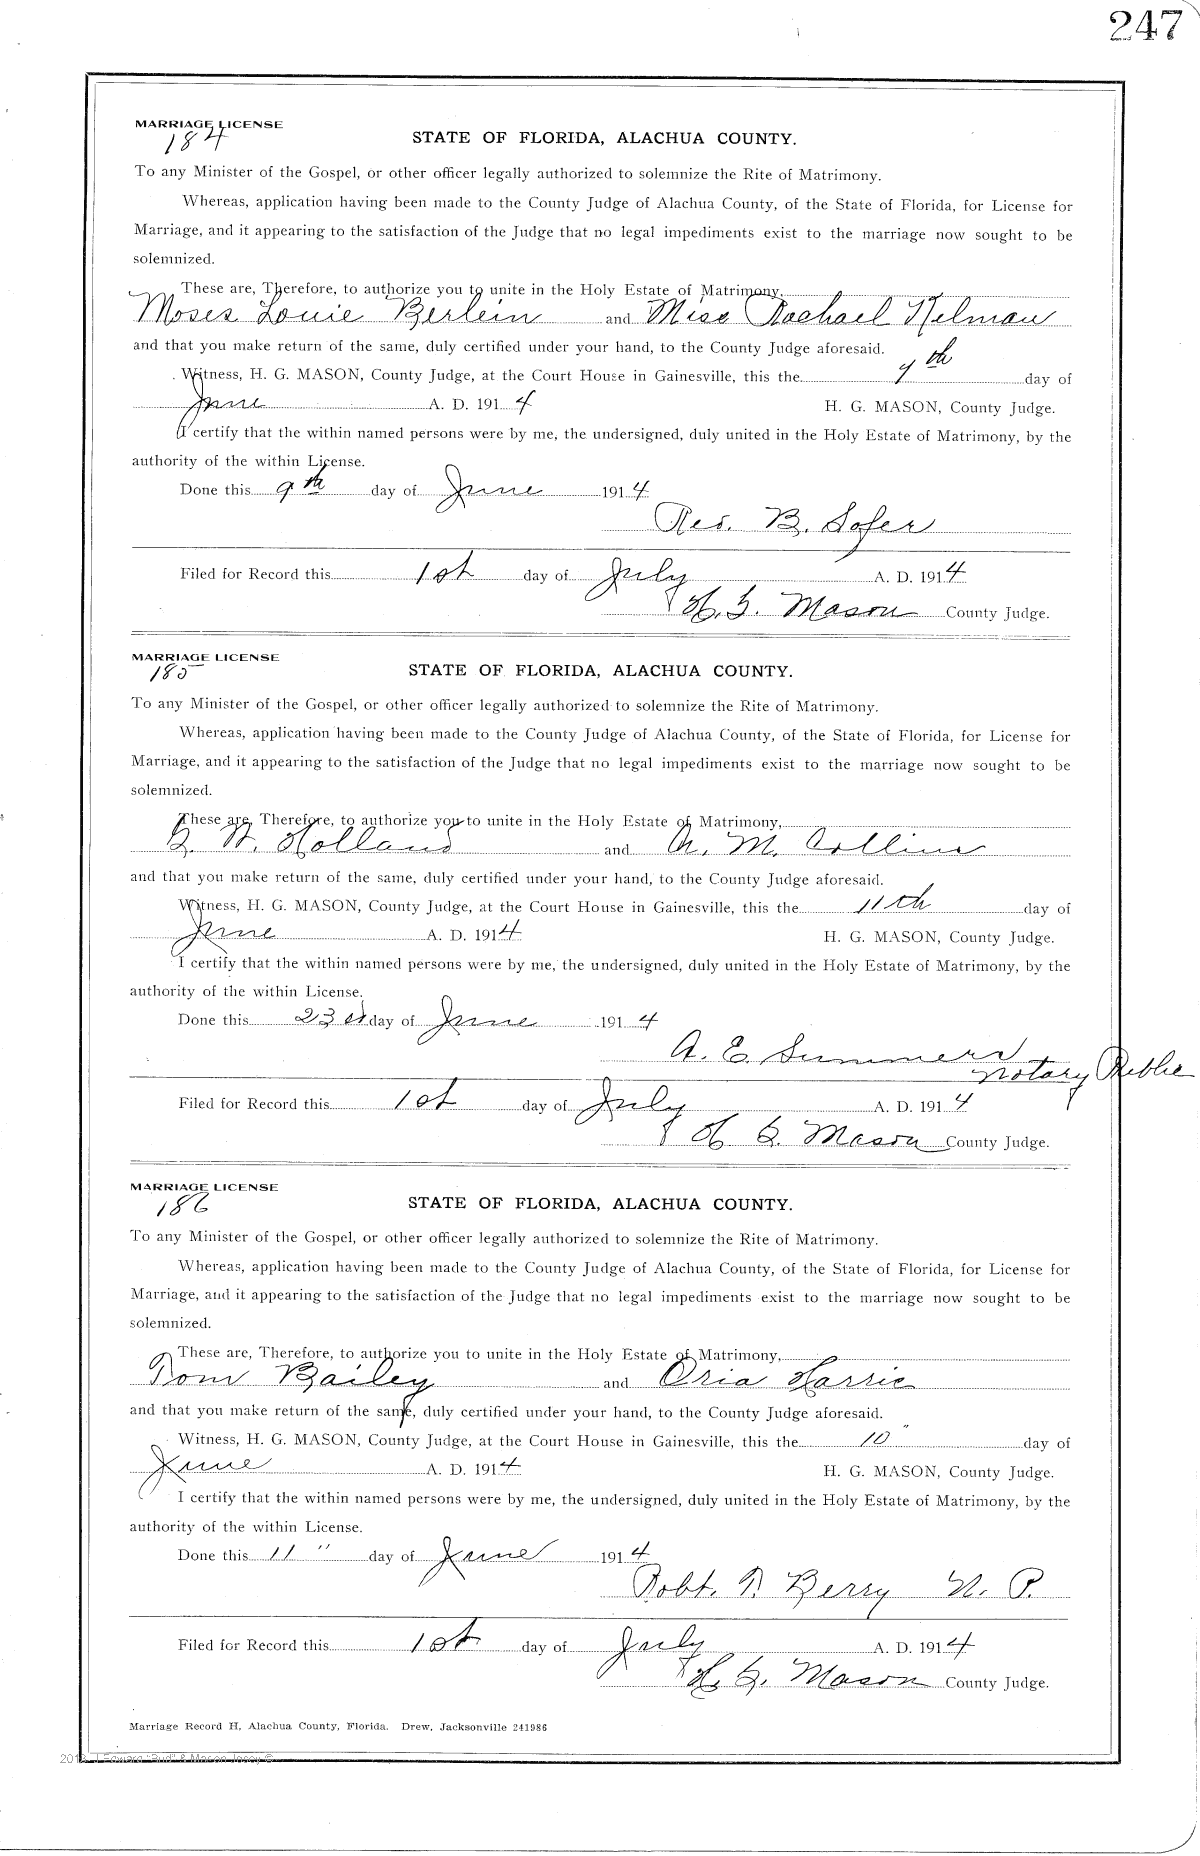 247
MARRIAGE LICENSE
184
STATE OF FLORIDA, ALACHUA COUNTY.
To any Minister of the Gospel, or other officer legally authorized to solemnize the Rite of Matrimony.
Whereas, application having been made to the County Judge of Alachua County, of the State of Florida, for License for
Marriage, and it appearing to the satisfaction of the Judge that no legal impediments exist to the marriage now sought to be
solemnized.
These are, Therefore, to authorize you to unite in the Holy Estate of Matrimony,
Moses Louie Berlein and Miss Rachael Kelman
and that you make return of the same, duly certified under your hand, to the County Judge aforesaid.
Witness, H. G. MASON, County Judge, at the Court House in Gainesville, this the 9th day of
June A. D. 1914 H. G. MASON, County Judge.
I certify that the within named persons were by me, the undersigned, duly united in the Holy Estate of Matrimony, by the
authority of the within License.
Done this 9th day of June 1914
Rev. B. Sofer
Filed for Record this 1st day of July A. D. 1914
H. G. Mason County Judge.
MARRIAGE LICENSE
185
STATE OF FLORIDA, ALACHUA COUNTY.
To any Minister of the Gospel, or other officer legally authorized to solemnize the Rite of Matrimony.
Whereas, application having been made to the County Judge of Alachua County, of the State of Florida, for License for
Marriage, and it appearing to the satisfaction of the Judge that no legal impediments exist to the marriage now sought to be
solemnized.
These are, Therefore, to authorize you to unite in the Holy Estate of Matrimony,
G. W. Holland and A. M. Collins
and that you make return of the same, duly certified under your hand, to the County Judge aforesaid.
Witness, H. G. MASON, County Judge, at the Court House in Gainesville, this the 11th day of
June A. D. 1914 H. G. MASON, County Judge.
I certify that the within named persons were by me, the undersigned, duly united in the Holy Estate of Matrimony, by the
authority of the within License.
Done this 23rd day of June 1914
A. E. Summers
Notary Public
Filed for Record this 1st day of July A. D. 1914
H G. Mason County Judge.
MARRIAGE LICENSE
186
STATE OF FLORIDA, ALACHUA COUNTY.
To any Minister of the Gospel, or other officer legally authorized to solemnize the Rite of Matrimony.
Whereas, application having been made to the County Judge of Alachua County, of the State of Florida, for License for
Marriage, and it appearing to the satisfaction of the Judge that no legal impediments exist to the marriage now sought to be
solemnized.
These are, Therefore, to authorize you to unite in the Holy Estate of Matrimony,
Tom Bailey and Oria Harris
and that you make return of the same, duly certified under your hand, to the County Judge aforesaid.
Witness, H. G. MASON, County Judge, at the Court House in Gainesville, this the 10" day of
June A. D. 1914 H. G. MASON, County Judge.
I certify that the within named persons were by me, the undersigned, duly united in the Holy Estate of Matrimony, by the
authority of the within License.
Done this 11" day of June 1914
Robt. T. Berry N. P.
Filed for Record this 1st day of July A. D. 1914
H. G. Mason County Judge.
Marriage Record H, Alachua County, Florida. Drew, Jacksonville 241986